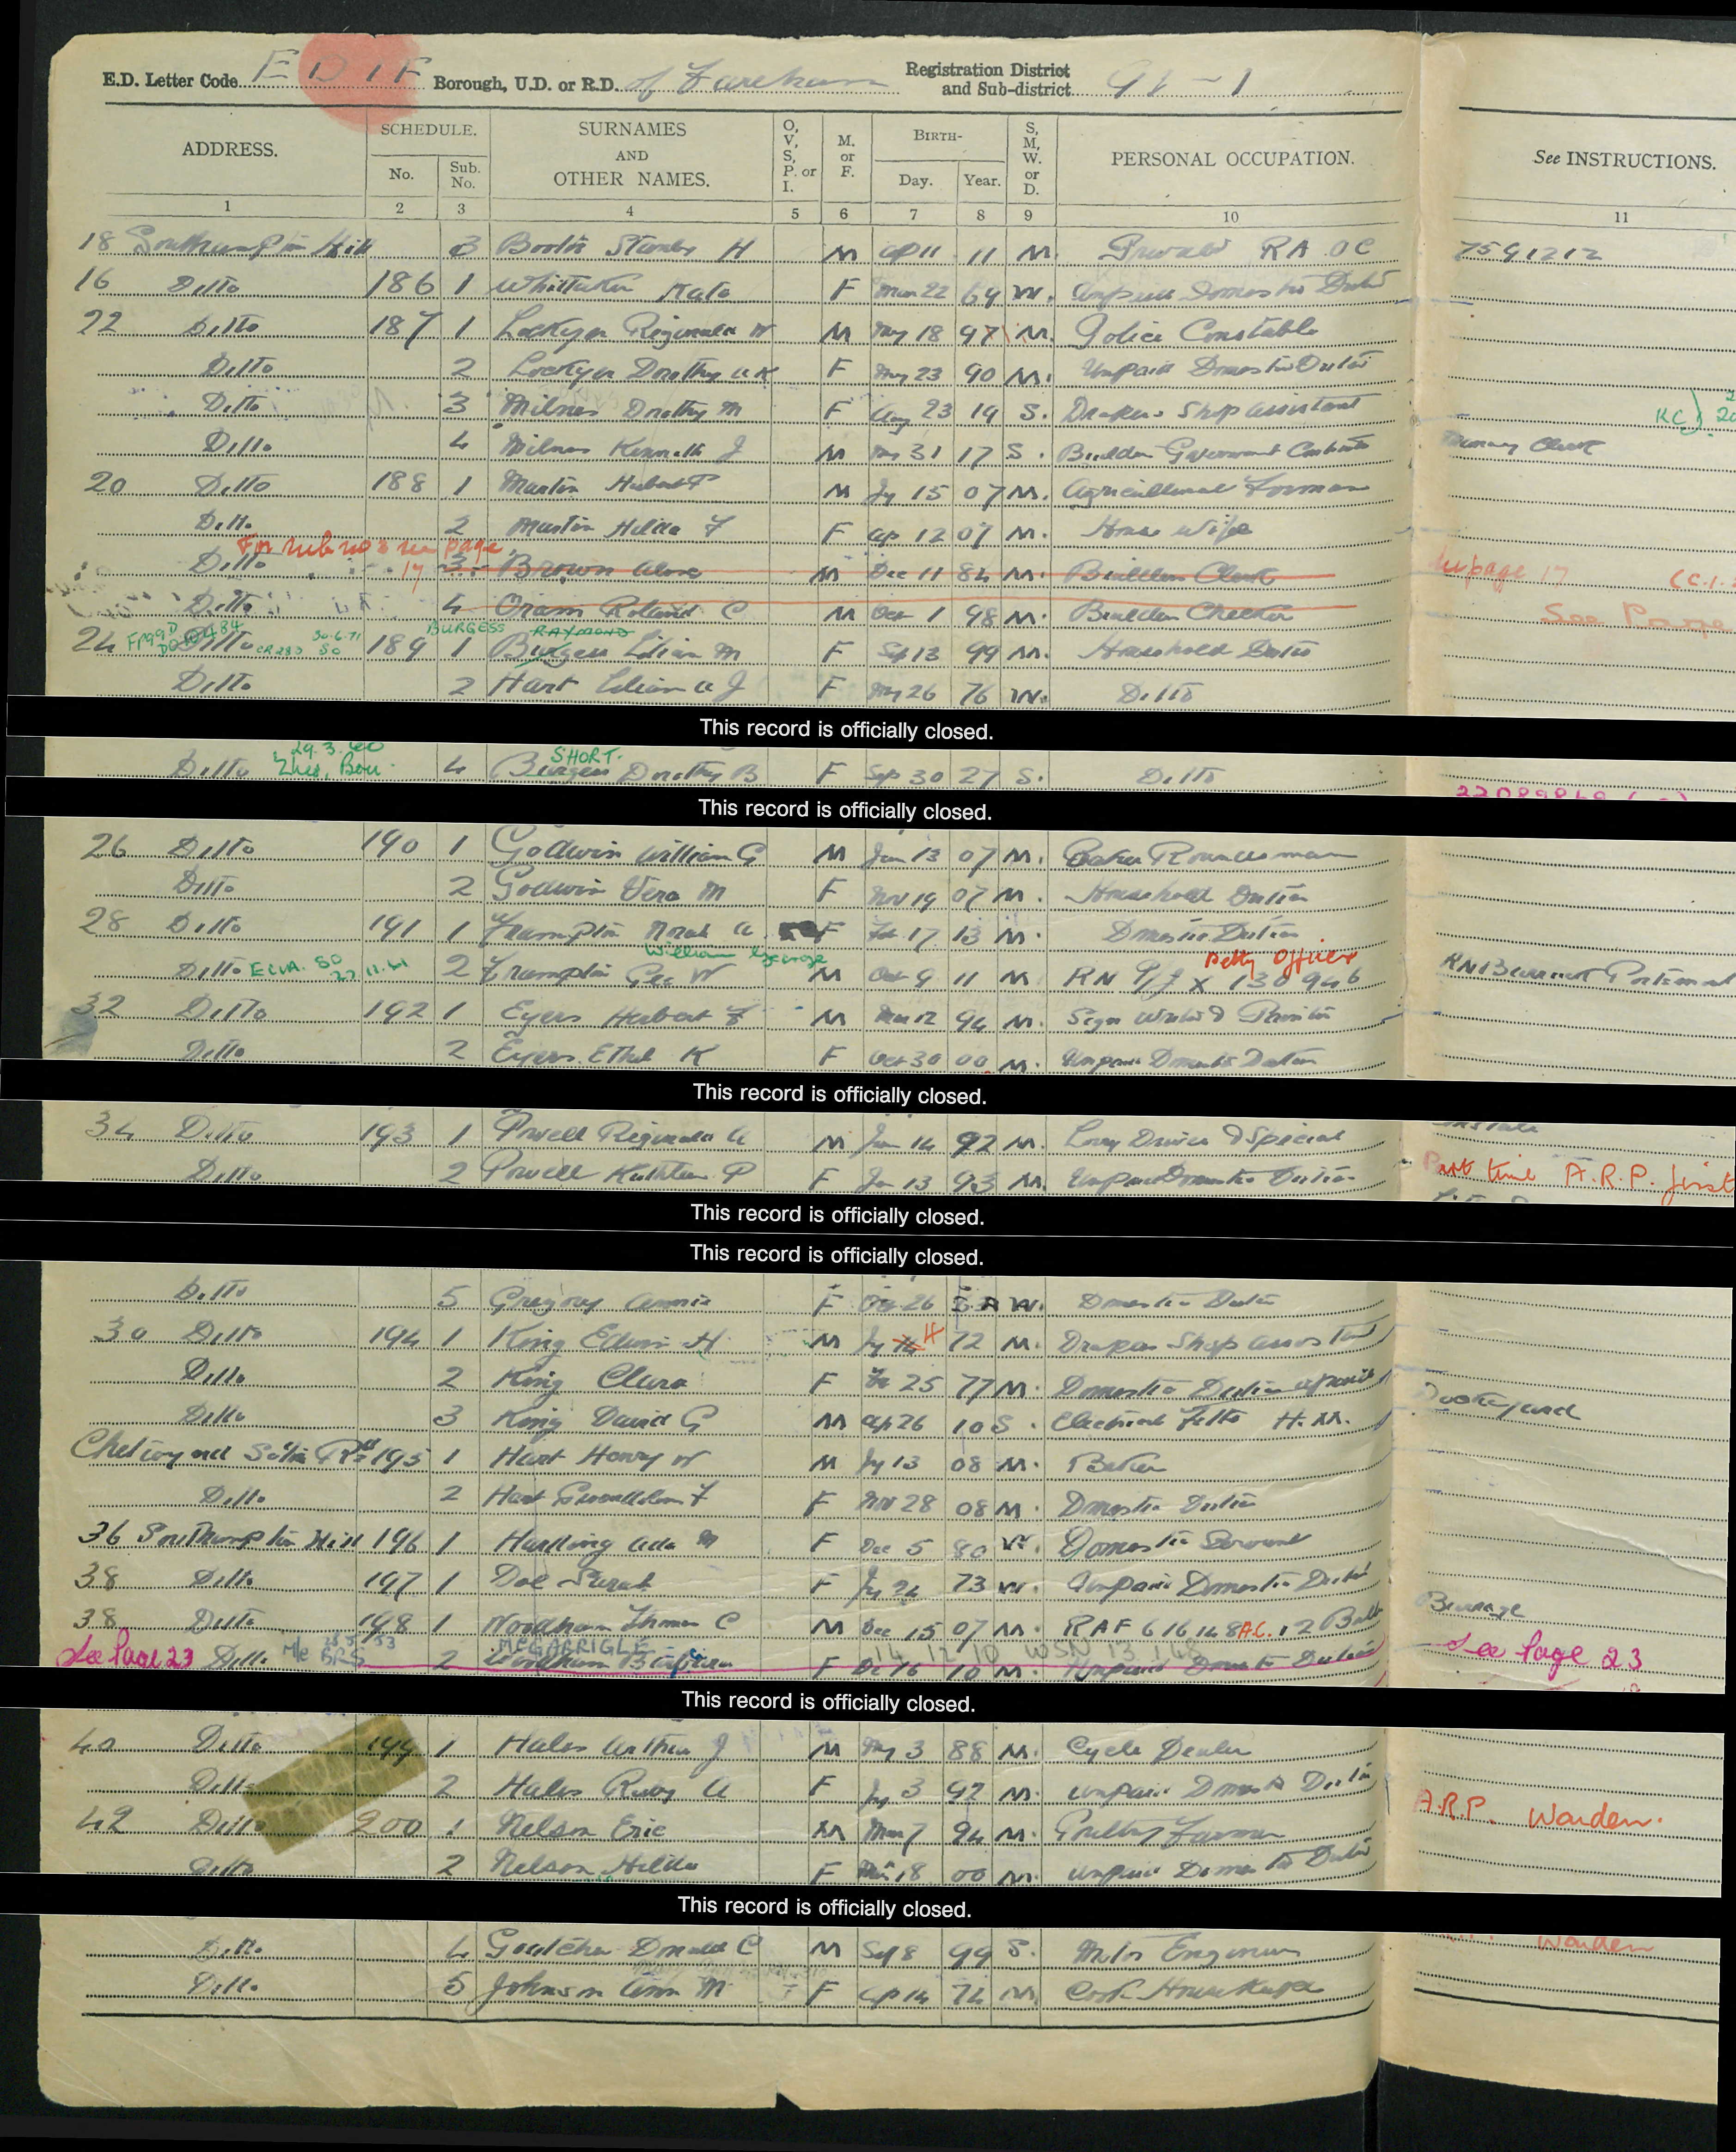 E.D. Letter Code E D I F Borough, U.D. or R.D. of Fareham Registration District and Sub-district 91 - 1
ADDRESS. SCHEDULE. No. Sub. No. SURNAMES AND OTHER NAMES. O, V, S, P. or I. M. or F. BIRTH- Day. Year. S, M, W. or D. PERSONAL OCCUPATION. See INSTRUCTIONS.
1 2 3 4 5 6 7 8 9 10 11
18 Southampton Hill 3 Booth Stanley H M Ap 11 11 M. Private RAOC 7591212
16 Ditto 186 1 Whittaker Kate F Mar 22 69 W. Unpaid Domestic Duties
22 Ditto 187 1 Lockyer Reginald W M May 18 97 M. Police Constable
Ditto 2 Lockyer Dorothy A K F May 23 90 M. Unpaid Domestic Duties
Ditto 3 Milnes Dorothy M F Aug 23 19 S. Drapers Shop Assistant KC)
Ditto 4 Milnes Kenneth J M 31 17 S. Builder Government Contracts Clerk
20 Ditto 188 1 Martin Hubert P M Jy 15 07 M. Agricultural Foreman
Ditto 2 Martin Hilda F F Ap 12 07 M. House Wife
For sub no 3 see page 17
Ditto 3 Brown M Dec 11 84 M. Builders Clerk See page 17 (C.I.
Ditto 4 Oram Roland C M Oct 1 98 M. Builders Checker See Page
BURGESS RAYMOND
24 Ditto CR283 30.6.71 SO 189 1 Burgess Lilian M F Sep 13 99 M. Household Duties
Ditto 2 Hart Lilian A J F May 26 76 W. Ditto
This record is officially closed.
29.3.60 SHORT.
Ditto 4 Burgess Dorothy B F Sep 30 27 S. Ditto
This record is officially closed.
26 Ditto 190 1 Godwin William G M Jan 13 07 M. Baker Roundsman
Ditto 2 Godwin Vera M F Nov 19 07 M. Household Duties
28 Ditto 191 1 Frampton Norah A F Feb 17 13 M. Domestic Duties
William George Petty Officer
Ditto ECVA. SO 22.11.61 2 Frampton Geo W M Oct 9 11 M RN P/J X 130946 RN Barracks
32 Ditto 192 1 Eyers Herbert F M Mar 12 94 M. Sign Writer & Painter
Ditto 2 Eyers Ethel K F Oct 30 00 M. Unpaid Domestic Duties
This record is officially closed.
34 Ditto 193 1 Powell Reginald A M Jan 14 92 M. Lorry Driver & Special
Ditto 2 Powell Kathleen P F Jan 13 93 M. Unpaid Domestic Duties Part time A.R.P. first
This record is officially closed.
This record is officially closed.
Ditto 5 Gregory Annie F 26 W. Domestic Duties
30 Ditto 194 1 King Edwin H M Jy 72 M. Drapers Shop Assistant
Ditto 2 King Clara F Feb 25 77 M. Domestic Duties unpaid
Ditto 3 King David G M Ap 26 10 S. Electrical Fitter H.M. Dockyard
Chetwynd 195 1 Hart Henry W M Jy 13 08 M. Baker
Ditto 2 Hart Gwendoline F F Nov 28 08 M. Domestic Duties
36 Southampton Hill 196 1 Harding Ada M F Dec 5 80 W. Domestic Servant
38 Ditto 197 1 Doe Sarah F Jy 24 73 W. Unpaid Domestic Duties
38 Ditto 198 1 Woodham Thomas C M Dec 15 07 M. RAF 616148 A.C. 2 Barrage
MEGARRIGLE 14 12 10 WSN 13
See Page 23 Ditto M/e BRS 2 Woodham F Dec 16 10 M. Unpaid Domestic Duties See Page 23
This record is officially closed.
40 Ditto 199 1 Hales Arthur J M May 3 88 M. Cycle Dealer
Ditto 2 Hales Ruby A F Jy 3 92 M. Unpaid Domestic Duties
42 Ditto 200 1 Nelson Eric M Mar 7 94 M. Poultry Farmer A.R.P. Warden.
Ditto 2 Nelson Hilda F 18 00 M. Unpaid Domestic Duties
This record is officially closed.
Ditto 4 Goutcher Donald C M Sep 8 99 S. Motor Engineer Warden
Ditto 5 Johnson Ann M F Ap 14 74 M Cook Housekeeper